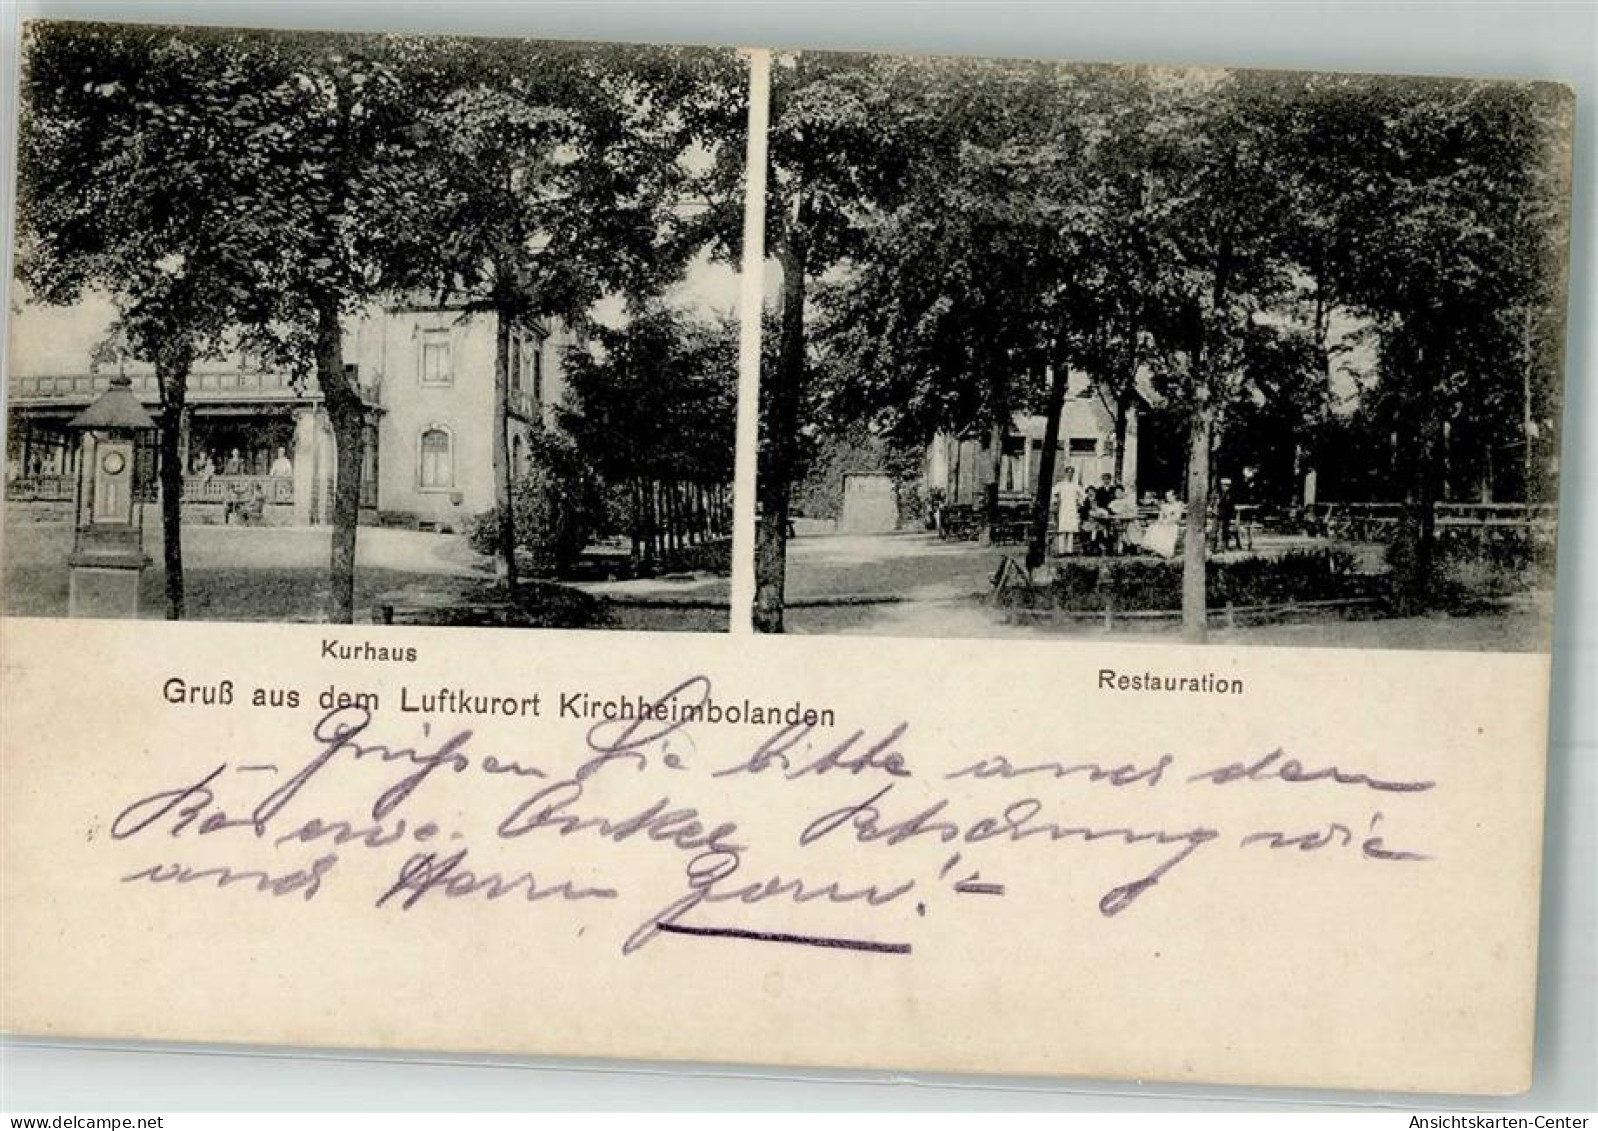 Kurhaus
Restauration
Gruß aus dem Luftkurort Kirchheimbolanden
Grüßen Sie bitte auch den
Onkel wie
auch Herrn
Ansichtskarten-Center